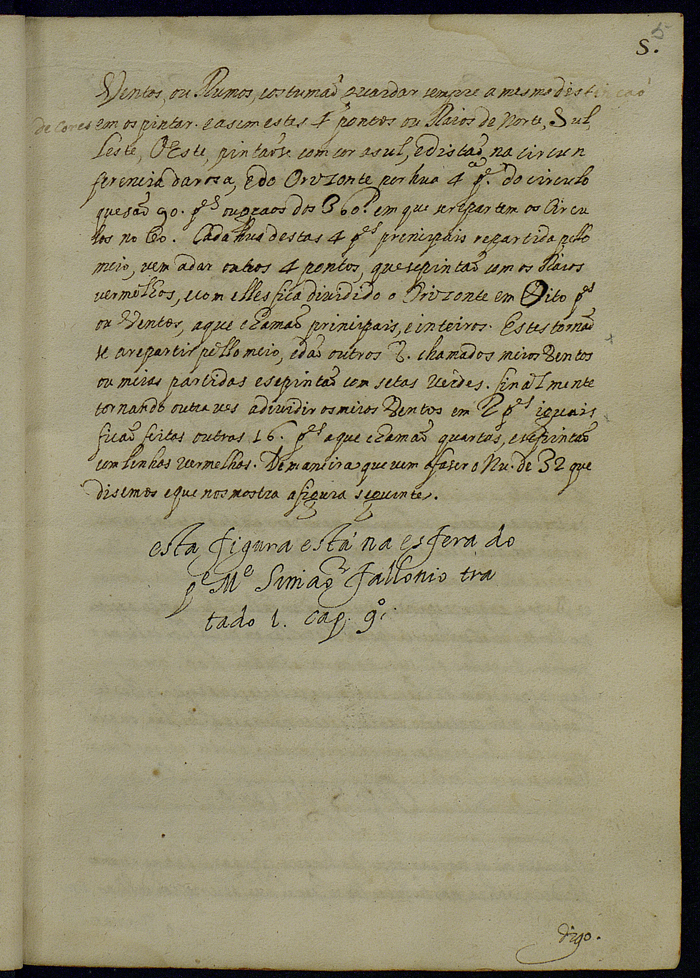 5
S.
Ventos, ou Rumos, costumaõ guardar sempre a mesma destinçaõ
de Cores em os pintar. e asim estes 4 pontos ou Raios de Norte, Sul,
Leste, Oeste, pintaõse com cor asul, e distaõ na circun
ferencia da rosa, e do Orizonte por hua 4ª p.ᵉ do circulo
que saõ 90. p.ᵉˢ ou graos dos 360. em que se repartem os Circu
los no Ceo. Cada hua destas 4 p.ᵉˢ principais repartida pello
meio, vem a dar outros 4 pontos, que se pintaõ com os Raios
vermelhos, e com elles fica dividido o Orizonte em Oito p.ᵉˢ
ou Ventos, a que chamaõ principais, e inteiros. Estes tornaõ
se a repartir pello meio, e daõ outros 8. chamados meios Ventos
ou meias partidas e se pintaõ com setas verdes. finalmente
tornando outra ves a dividir os meios Ventos em 2 p.ᵉˢ iguais
ficaõ feitas outras 16. p.ᵉˢ a que chamaõ quartas, e se pintaõ
com linhas vermelhas. De maneira que vem a faser o Nu. de 32 que
disemos e que nos mostra a figura seguinte.
esta figura está na esfera do
p.ᵉ M.ᵉ Simaõ Fallonio tra
tado 1. cap. 9º.
digo.